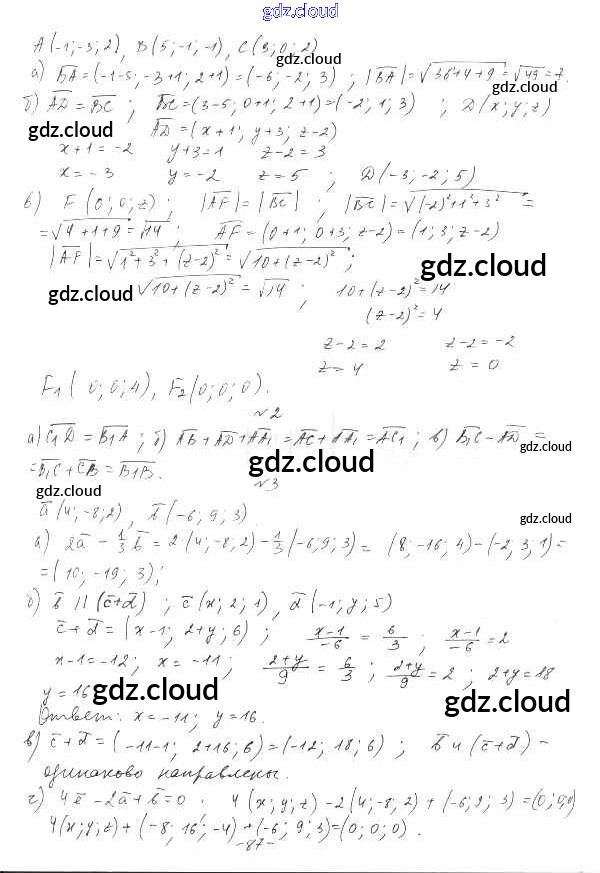 gdz.cloud
gdz.cloud
A(-1;-3;2), B(5;-1;-1), C(3;0;2)
gdz.cloud
а) B̅A̅=(-1-5;-3+1;2+1)=(-6;-2;3) ; |B̅A̅|=√36+4+9=√49=7.
б) A̅D̅=B̅C̅ ; B̅C̅=(3-5;0+1;2+1)=(-2;1;3) ; D(x;y;z)
A̅D̅=(x+1; y+3; z-2)
gdz.cloud
gdz.cloud
x+1=-2 y+3=1 z-2=3
x=-3 y=-2 z=5 ; D(-3;-2;5)
в) F(0;0;z) ; |A̅F̅|=|B̅C̅| ; |B̅C̅|=√(-2)²+1²+3² =
=√4+1+9=√14 ; A̅F̅=(0+1;0+3;z-2)=(1;3;z-2)
|A̅F̅|=√1²+3²+(z-2)²=√10+(z-2)² ;
gdz.cloud
gdz.cloud
√10+(z-2)²=√14 ; 10+(z-2)²=14
(z-2)²=4
z-2=2 z-2=-2
z=4 z=0
F₁(0;0;4), F₂(0;0;0).
№2
а) C̅₁D̅=B̅₁A̅ ; б) A̅B̅+A̅D̅+A̅A̅₁=A̅C̅+A̅A̅₁=A̅C̅₁ ; в) B̅₁C̅-A̅D̅=
gdz.cloud
gdz.cloud
=B̅₁C̅+C̅B̅=B̅₁B̅.
№3
a̅(4;-8;2), b̅(-6;9;3)
gdz.cloud
gdz.cloud
а) 2a̅-1/3b̅=2(4;-8;2)-1/3(-6;9;3)=(8;-16;4)-(-2;3;1)=
=(10;-19;3);
б) b̅ || (c̅+d̅) ; c̅(x;2;1), d̅(-1;y;5)
c̅+d̅=(x-1; 2+y; 6) ; x-1/-6=6/3 ; x-1/-6=2
x-1=-12; x=-11; 2+y/9=6/3 ; 2+y/9=2 ; 2+y=18
y=16
gdz.cloud
gdz.cloud
Ответ: x=-11; y=16.
в) c̅+d̅=(-11-1; 2+16; 6)=(-12; 18; 6) ; b̅ и (c̅+d̅) -
одинаково направлены.
gdz.cloud
gdz.cloud
г) 4e̅-2a̅+b̅=0 . 4(x;y;z)-2(4;-8;2)+(-6;9;3)=(0;0;0)
4(x;y;z)+(-8;16;-4)+(-6;9;3)=(0;0;0).
-87-